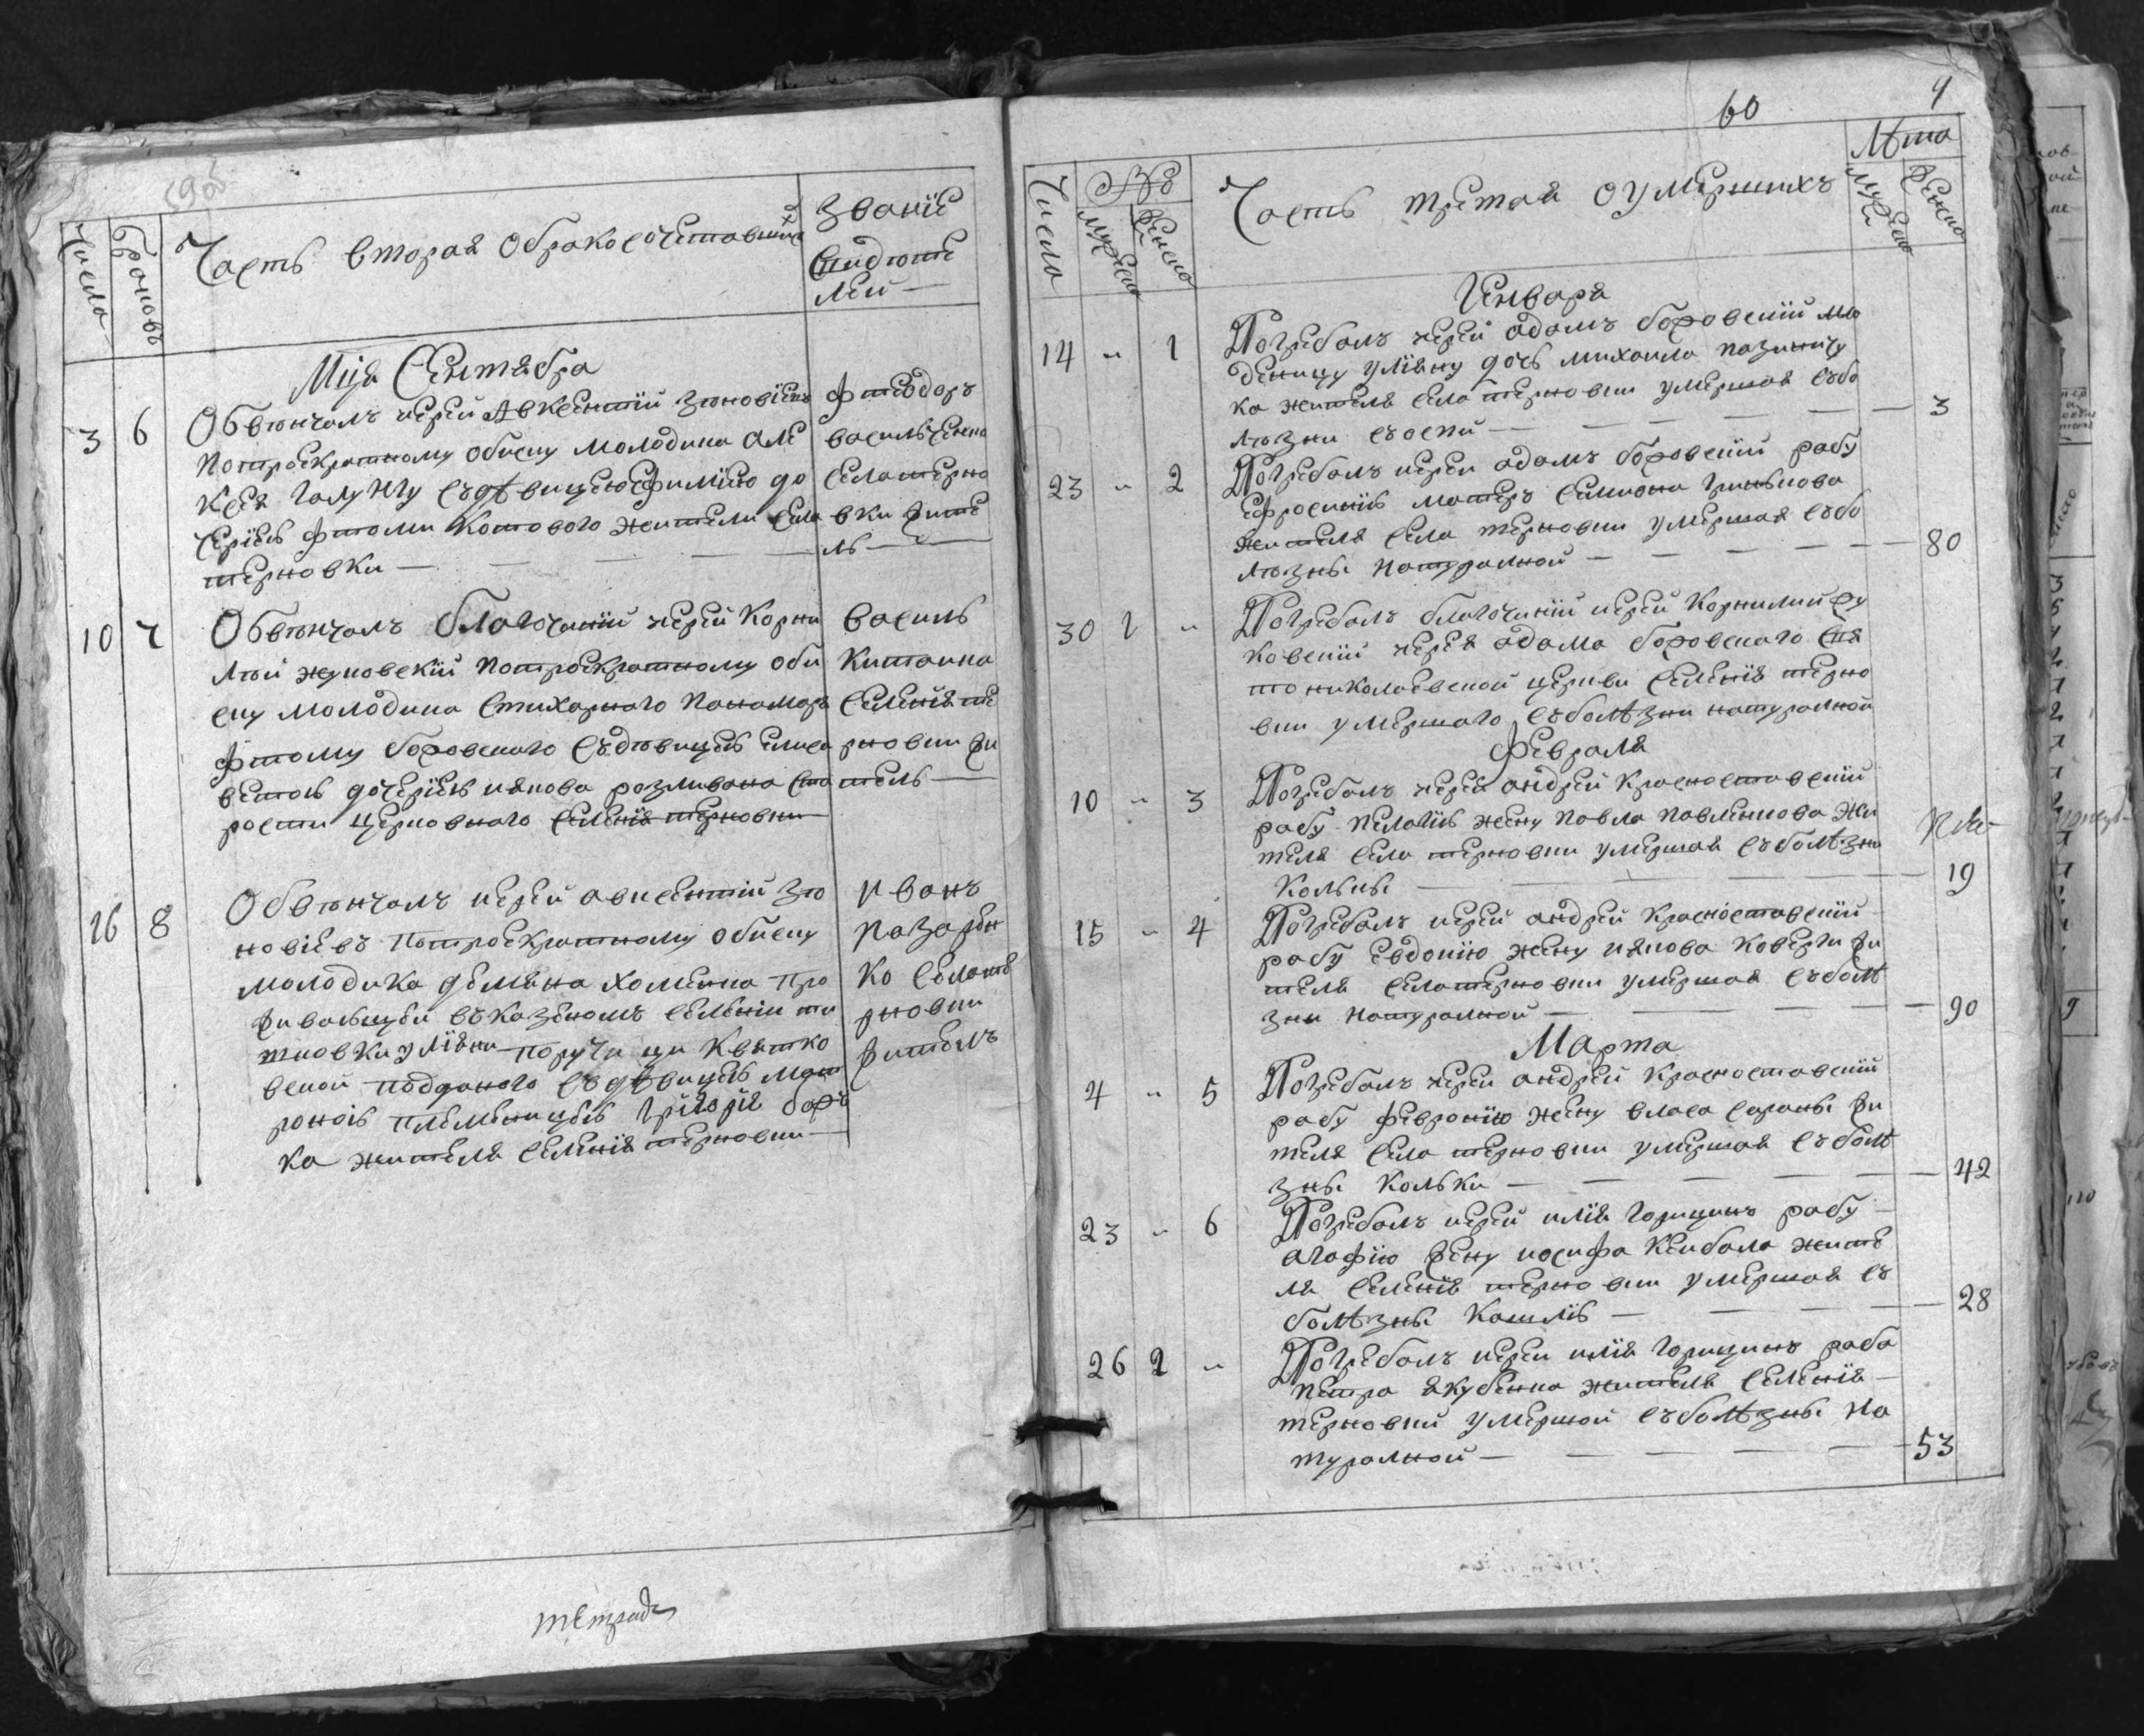 Числа
Браковъ
Часть вторая обракосочетавшихъ
Званїе
свидѣте
лей —
Мцa Сентября
3 6
Обвѣнчалъ иерей Авксентий Зѣновїевъ
потроекратному обиску молодика Оле
ксея Галуну съдѣвицею Ефимїею до
черїею Фтоми Котового жители села
терновки —
Фтеодоръ
василь
села терно
вки жите
ль —
10 7
Обвѣнчалъ благочиний иерей Корни
лий жуковский потроекратному оби
ску молодика стихарного пономаря
Фтому Боровского съдѣвицею елиса
ветою дочерїею иякова розливана ста
рости церковного селенія терновки
василь
Китаика
селенїя те
рновки жи
тель —
26 8
Обвѣнчалъ иерей авксентїй Зѣ
новїевъ потроекратному обиску
молодика демяна хоменка про
живающи въказеномъ селенїи
поручи ци Квятко
вской подданого съдѣвицею мат
роною племеницею Григорїя
ка жителя селенїя терновки —
Иванъ
назарен
ко села те
рновки
жителъ
тетрадь
60
4
Числа
№
Мужеска
Женска
Часть третая о умершихъ
Лѣта
Мужеска
Женска
Генваря
14 " 1
Погребалъ иерей адамъ боровский мла
деницу улїяну дочь михаила
ка жителя села терновки умершая събо
лѣзни съоспи — 3
23 " 2
Погребалъ иерей адамъ боровский рабу
Ефросинїю матерь симиона
жителя села терновки умершая събо
лѣзны натуралной — 80
30 1 "
Погребалъ благочиний иерей Корнилий жу
ковский иерея адама боровского свя
то николаевской церкви селенїя терно
вки умершаго съболѣзни натуралной
Февраля
10 " 3
Погребалъ иерей андрей Красноставский
рабу Пелагїю жену Павла Павленкова жи
теля села терновки умершая съболѣзни
Колькы — 19
15 " 4
Погребалъ иерей андрей Красноставский
рабу Евдокїю жену иякова Коверги жи
теля села терновки умершая съболѣ
зни натуралной — 90
Марта
4 " 5
Погребалъ иерей андрей Красноставский
рабу Февронїю жену власа сараны жи
теля села терновки умершая съболѣ
зны Кольки — 42
23 " 6
Погребалъ иерей илїя Горицинъ рабу
агафїю жену иосифа Кенбала жите
ля селенїя терновки умершая съ
болѣзны Кашлїю — 28
26 2 "
Погребалъ иерей илїя Горицинъ раба
петра якубенка жителя селенїя
терновки умершой съболѣзны на
туралной — 53